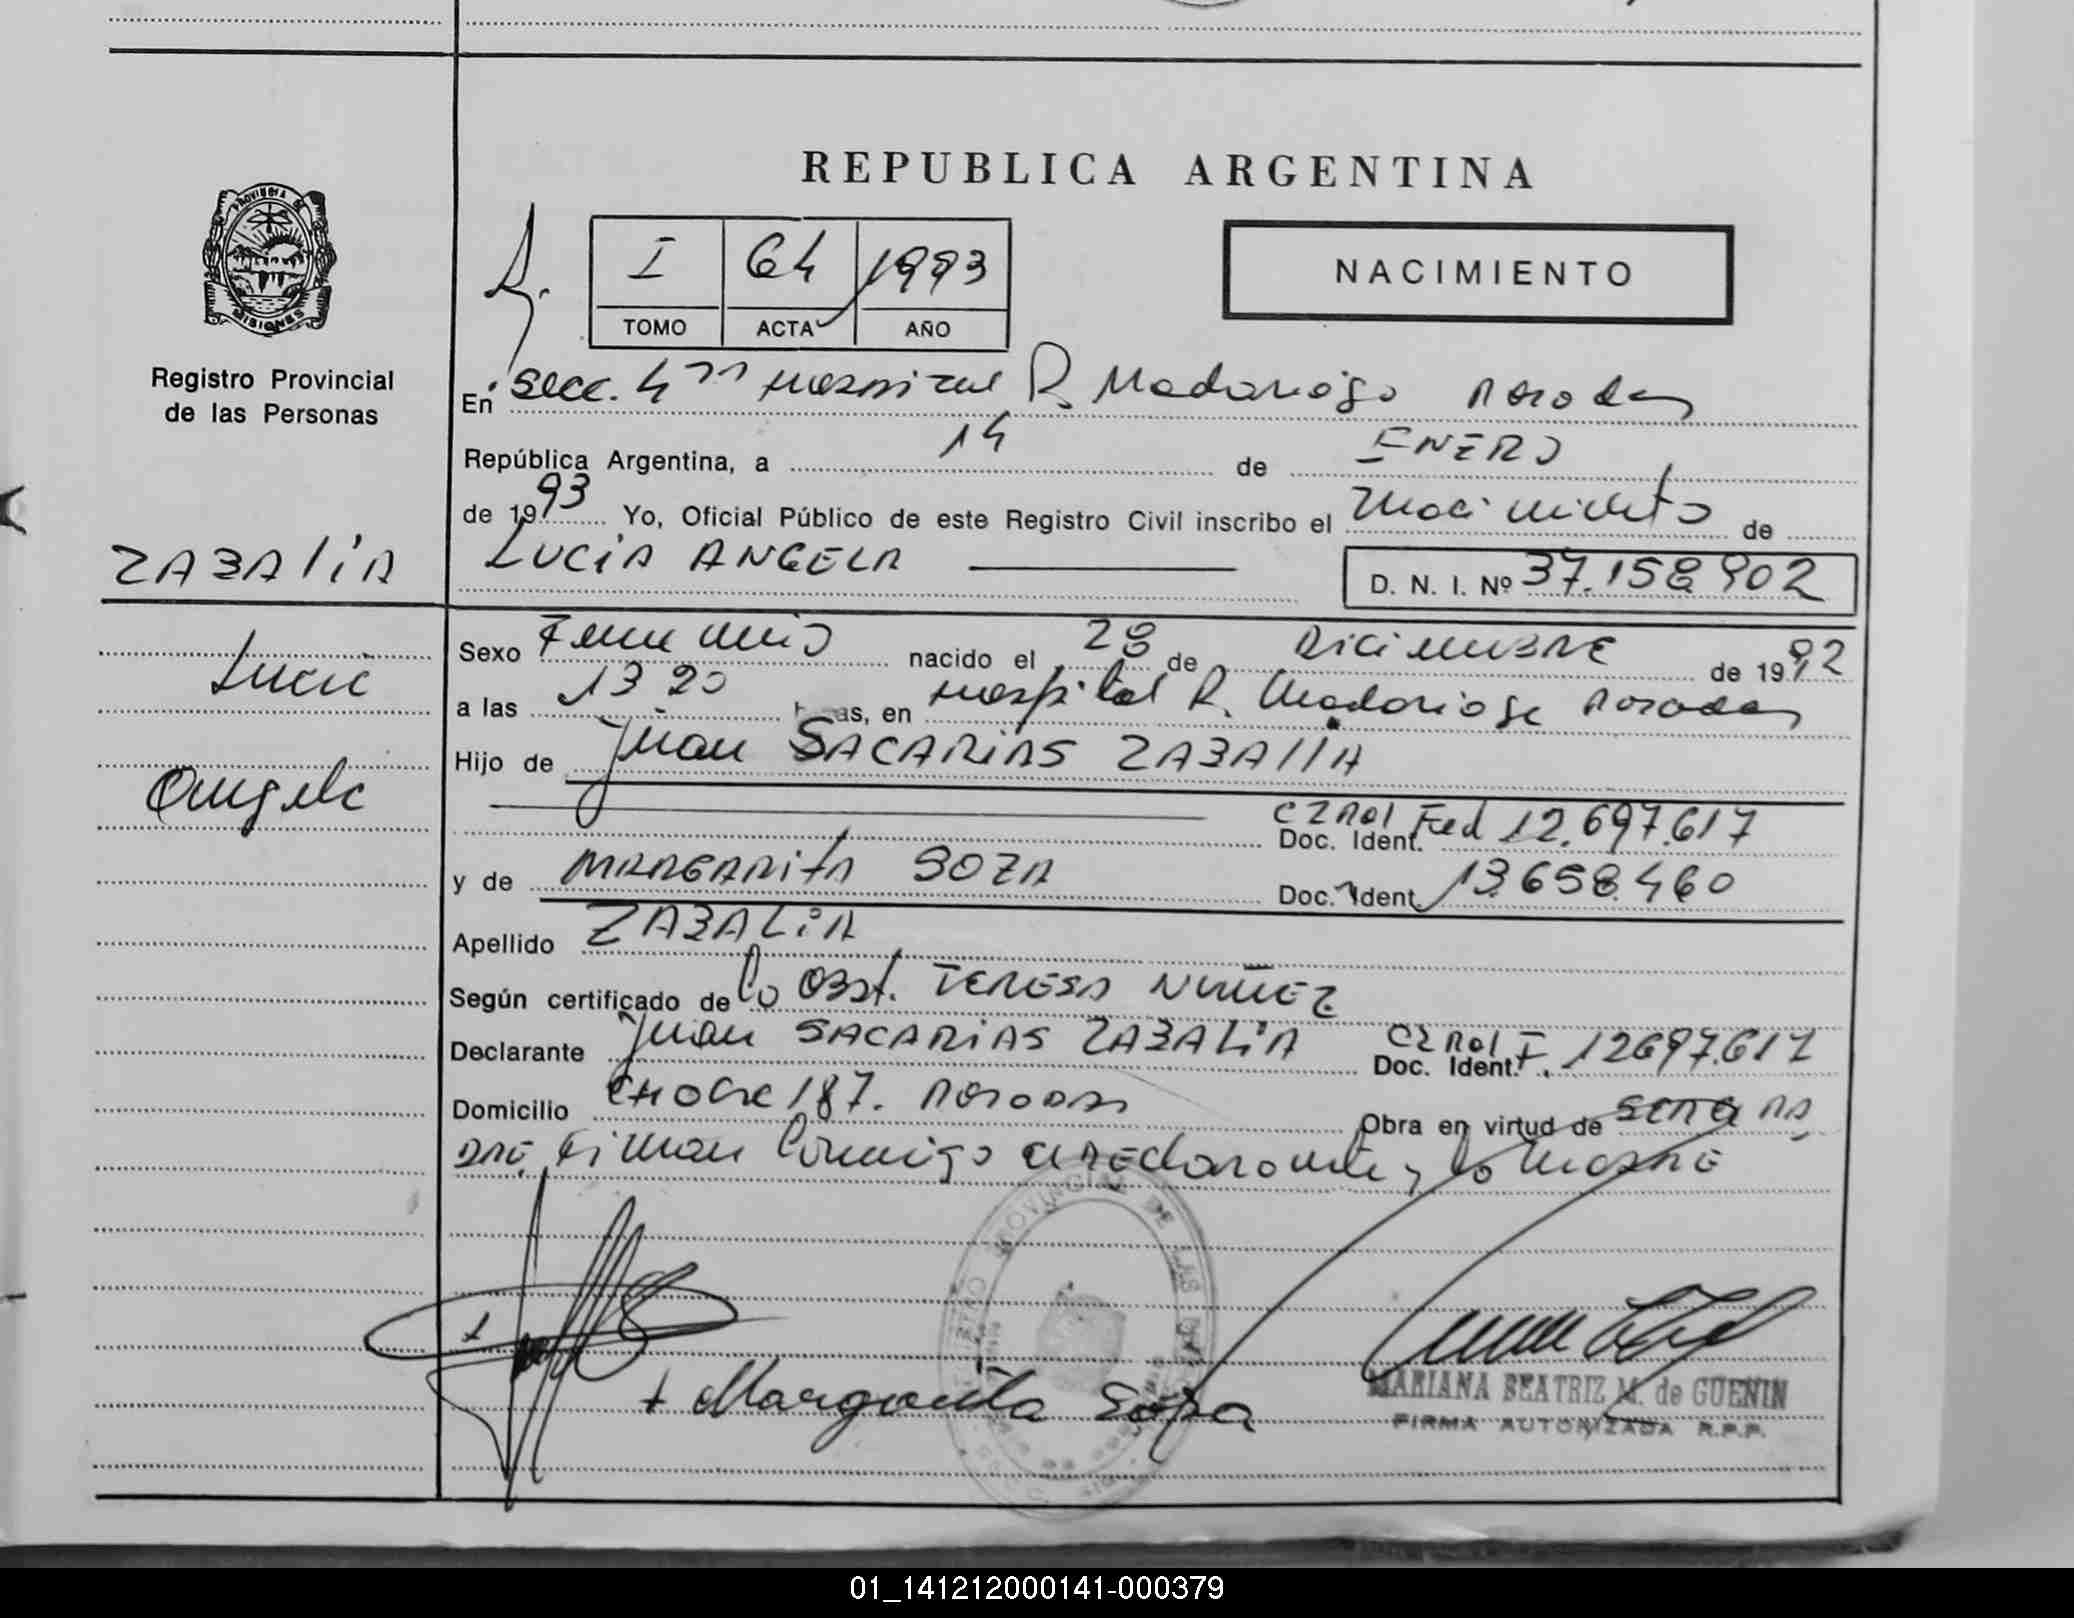 REPUBLICA ARGENTINA
PROVINCIA DE
MISIONES
Registro Provincial
de las Personas
I 64 1993
TOMO ACTA AÑO
NACIMIENTO
En Secc. 4ta Hospital R. Madariaga Posadas
República Argentina, a 14 de ENERO
de 1993 Yo, Oficial Público de este Registro Civil inscribo el Nacimiento de
ZABALIA
LUCIA ANGELA
D. N. I. Nº 37.158.902
Lucia
Angela
Sexo Femenino nacido el 28 de Diciembre de 1992
a las 13 20 horas, en Hospital R. Madariaga Posadas
Hijo de Juan SACARIAS ZABALIA
Doc. Ident. Fed 12.697.617
y de MARGARITA SOZA Doc. Ident 13.658.460
Apellido ZABALIA
Según certificado de la Obst. TERESA NUÑEZ
Declarante Juan SACARIAS ZABALIA Doc. Ident. F. 12697.617
Domicilio 187. Posadas Obra en virtud de
Firman Conmigo el declarante y la madre
REGISTRO PROVINCIAL DE LAS
+ Margarita Soza
MARIANA BEATRIZ M. de GUENIN
FIRMA AUTORIZADA R.P.P.
01_141212000141-000379